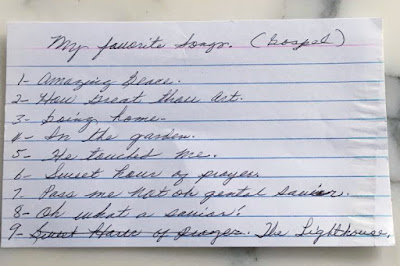 My favorite Songs. (Gospel)
1- Amazing Grace.
2- How Great thou art.
3- Going home.
4- In the garden.
5- He touched me.
6- Sweet hour of prayer.
7- Pass me not oh gental savior.
8- Oh what a savior!
9- Sweet Hour of prayer. The Lighthouse.